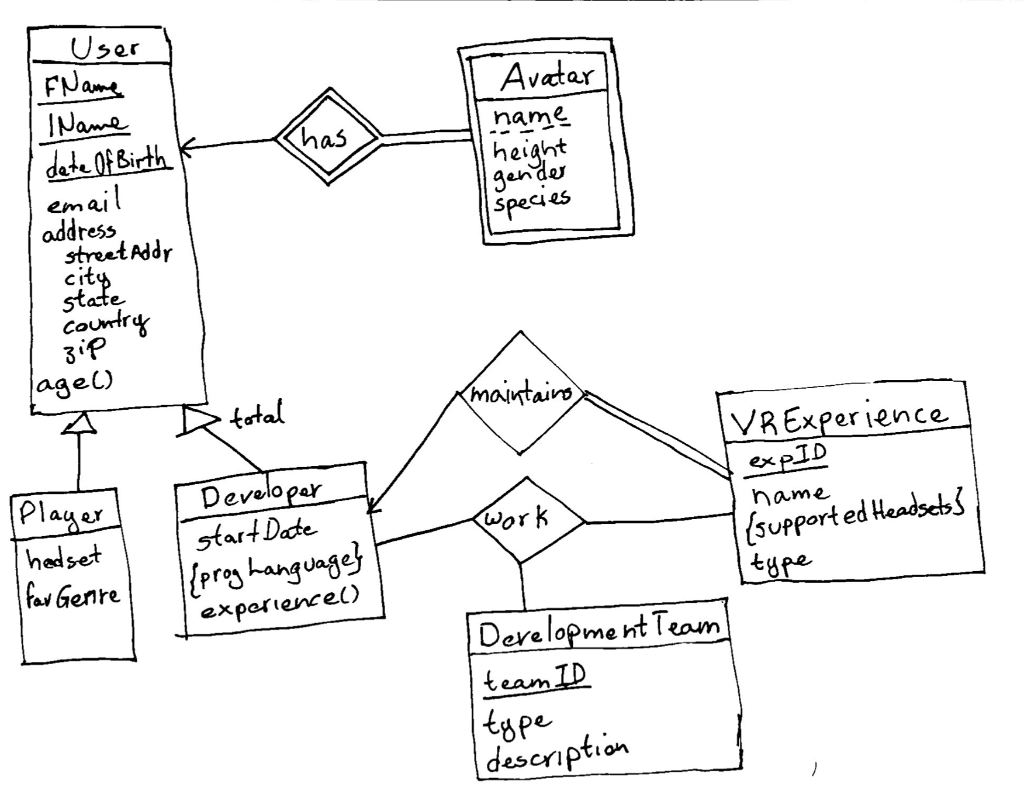 User
FName
lName
dateOfBirth
email
address
streetAddr
city
state
country
zip
age()
has
Avatar
name
height
gender
species
total
maintains
work
VRExperience
expID
name
{supportedHeadsets}
type
Player
hedset
favGenre
Developer
startDate
{progLanguage}
experience()
DevelopmentTeam
teamID
type
description